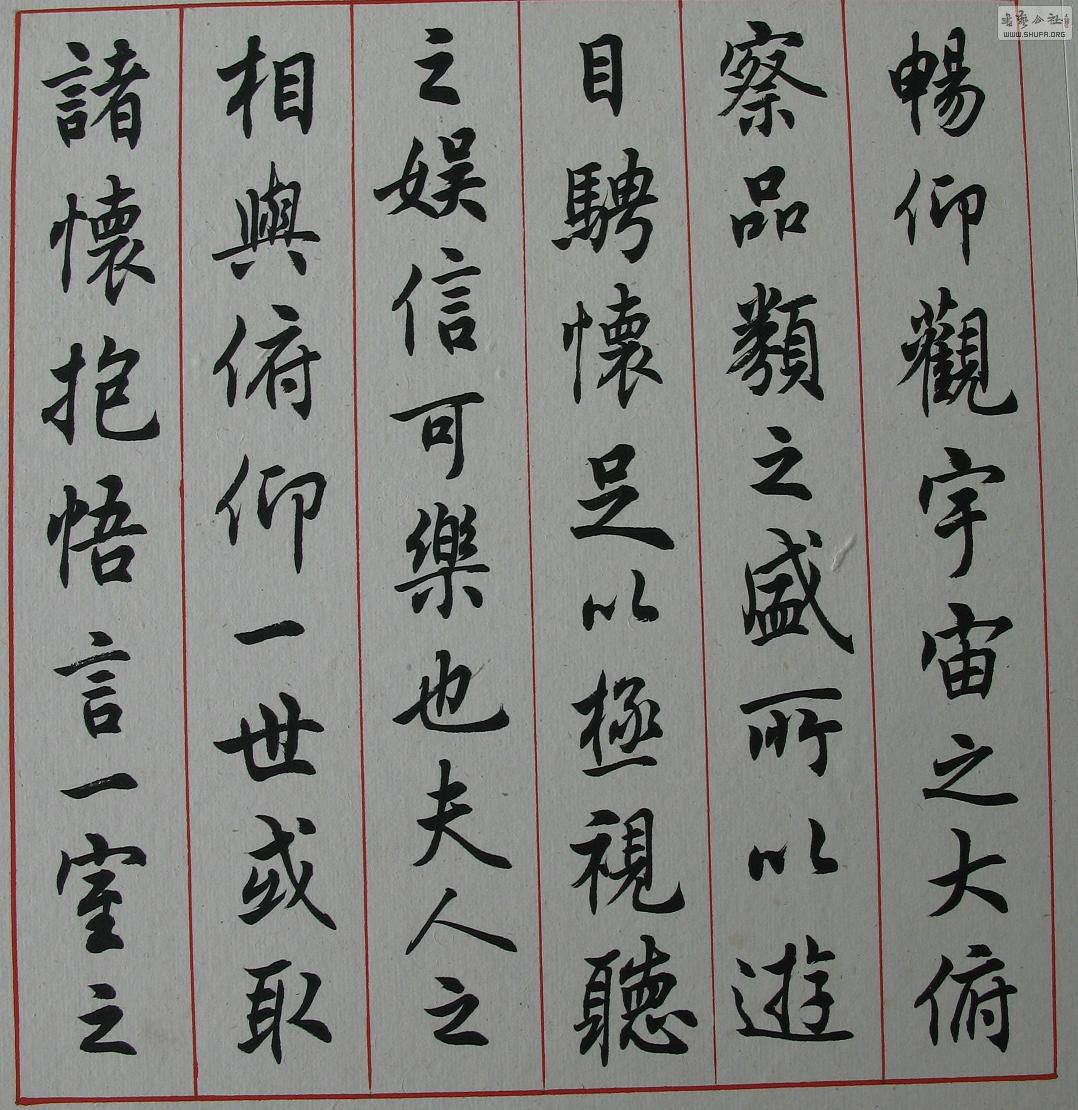 暢仰觀宇宙之大俯
察品類之盛所以遊
目騁懷足以極視聽
之娱信可樂也夫人之
相與俯仰一世或取
諸懷抱悟言一室之
書藝公社
WWW.SHUFA.ORG